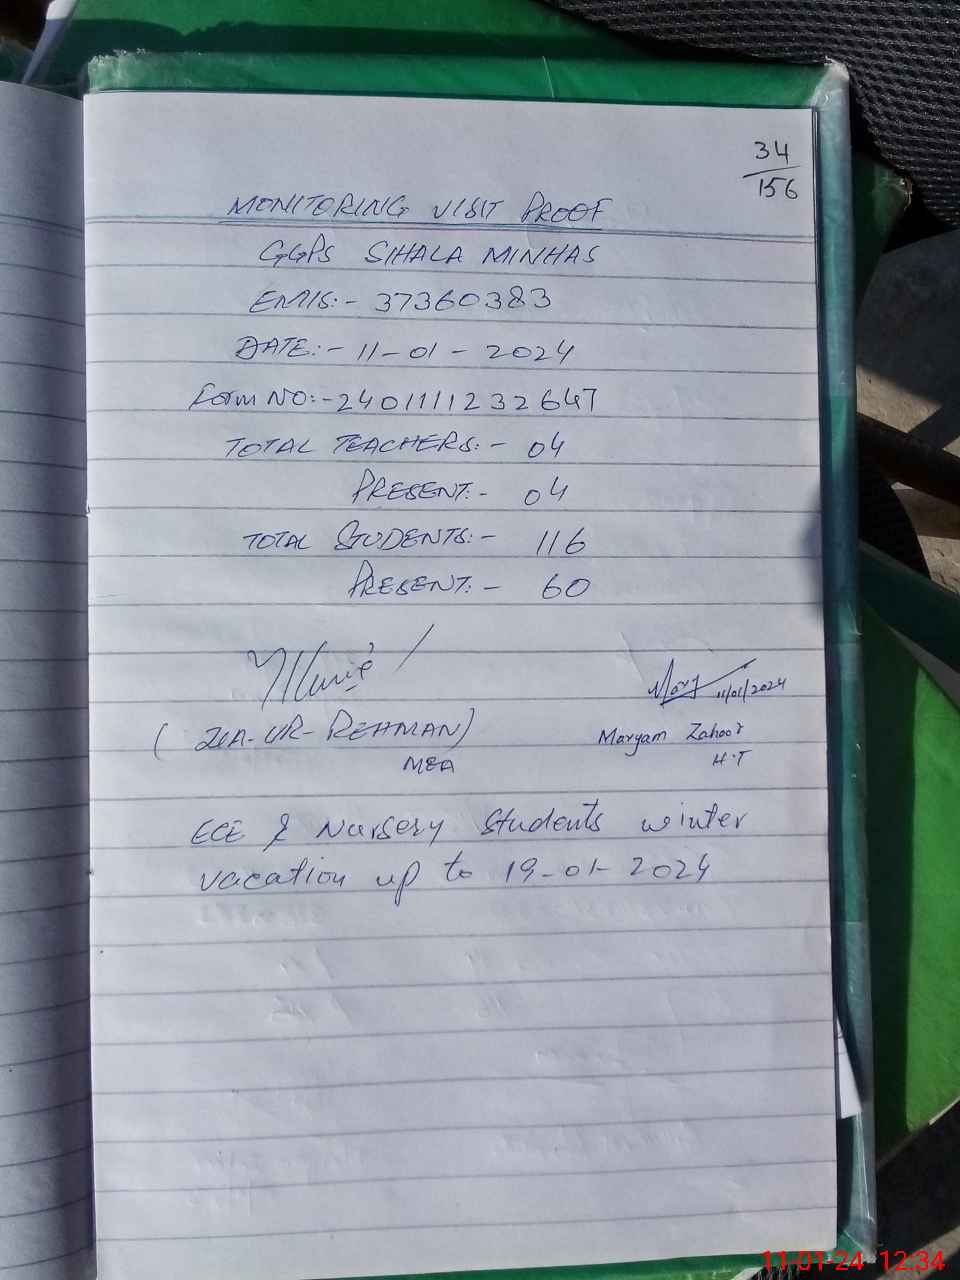 34
156
MONITORING VISIT PROOF
GGPS SIHALA MINHAS
EMIS:- 37360383
DATE:- 11-01-2024
Form NO:- 2401111232647
TOTAL TEACHERS:- 04
PRESENT:- 04
TOTAL STUDENTS:- 116
PRESENT:- 60
11/01/2024
(ZIA-UR-REHMAN)
Maryam Zahoor
MEA
H.T
ECE & Nursery Students winter
vacation up to 19-01-2024
11-01-24 12:34